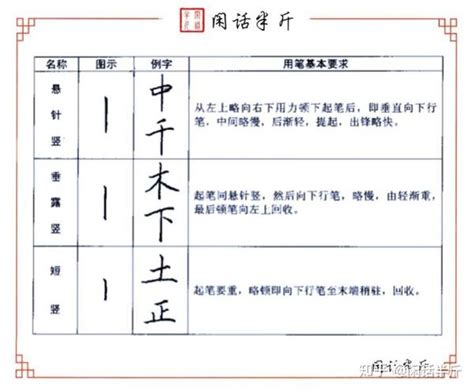 闲话半斤
名称 图示 例字 用笔基本要求
悬针竖
中
千
从左上略向右下用力顿下起笔后，即垂直向下行
笔，中间略慢，后渐轻，提起，出锋略快。
垂露竖
木
下
起笔同悬针竖，然后向下行笔，略慢，由轻渐重，
最后顿笔向左上回收。
短竖
土
正
起笔要重，略顿即向下行笔至末端稍驻，回收。
闲话半斤
知乎 @闲话半斤